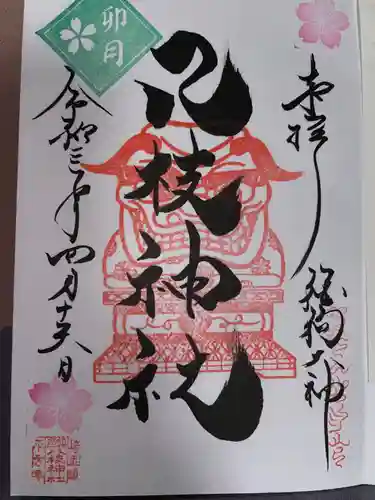 奉拝
狛狗大神
八枝神社
卯月
令和三年四月十六日